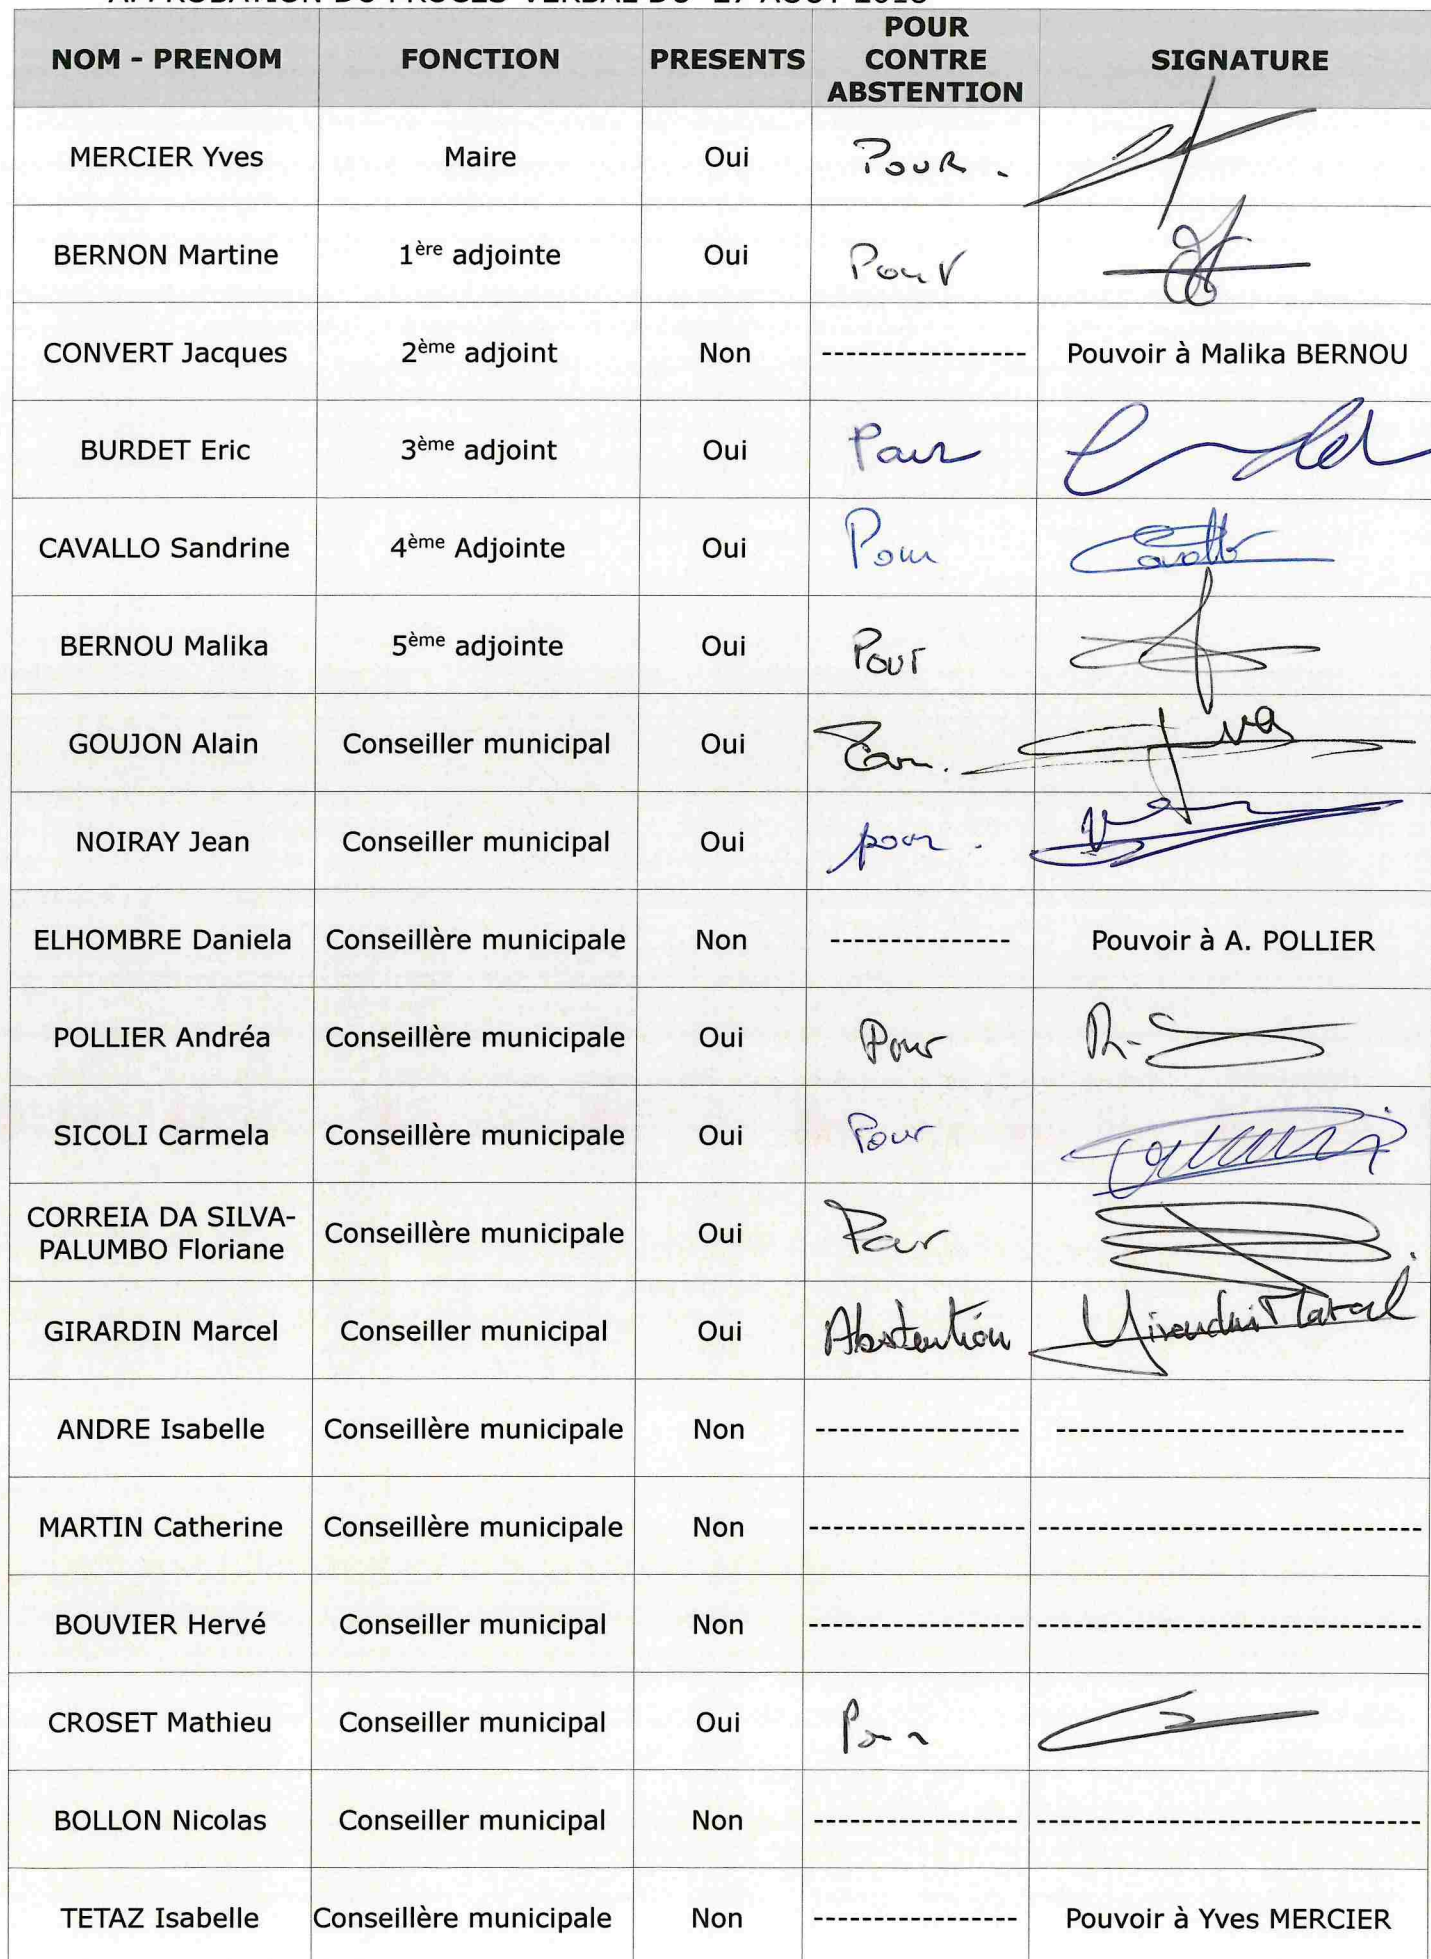 APPROBATION DU PROCES VERBAL DU 27 AOUT 2018
NOM - PRENOM FONCTION PRESENTS POUR CONTRE ABSTENTION SIGNATURE
MERCIER Yves Maire Oui POUR.
BERNON Martine 1ère adjointe Oui Pour
CONVERT Jacques 2ème adjoint Non ---------------- Pouvoir à Malika BERNOU
BURDET Eric 3ème adjoint Oui Pour
CAVALLO Sandrine 4ème Adjointe Oui Pour Cavallo
BERNOU Malika 5ème adjointe Oui Pour
GOUJON Alain Conseiller municipal Oui Pour.
NOIRAY Jean Conseiller municipal Oui pour.
ELHOMBRE Daniela Conseillère municipale Non -------------- Pouvoir à A. POLLIER
POLLIER Andréa Conseillère municipale Oui Pour
SICOLI Carmela Conseillère municipale Oui Pour
CORREIA DA SILVA-
PALUMBO Floriane Conseillère municipale Oui Pour
GIRARDIN Marcel Conseiller municipal Oui Abstention Girardin Marcel
ANDRE Isabelle Conseillère municipale Non ---------------- ---------------------------
MARTIN Catherine Conseillère municipale Non ----------------- ------------------------------
BOUVIER Hervé Conseiller municipal Non ----------------- ------------------------------
CROSET Mathieu Conseiller municipal Oui Pour
BOLLON Nicolas Conseiller municipal Non ---------------- ------------------------------
TETAZ Isabelle Conseillère municipale Non ---------------- Pouvoir à Yves MERCIER